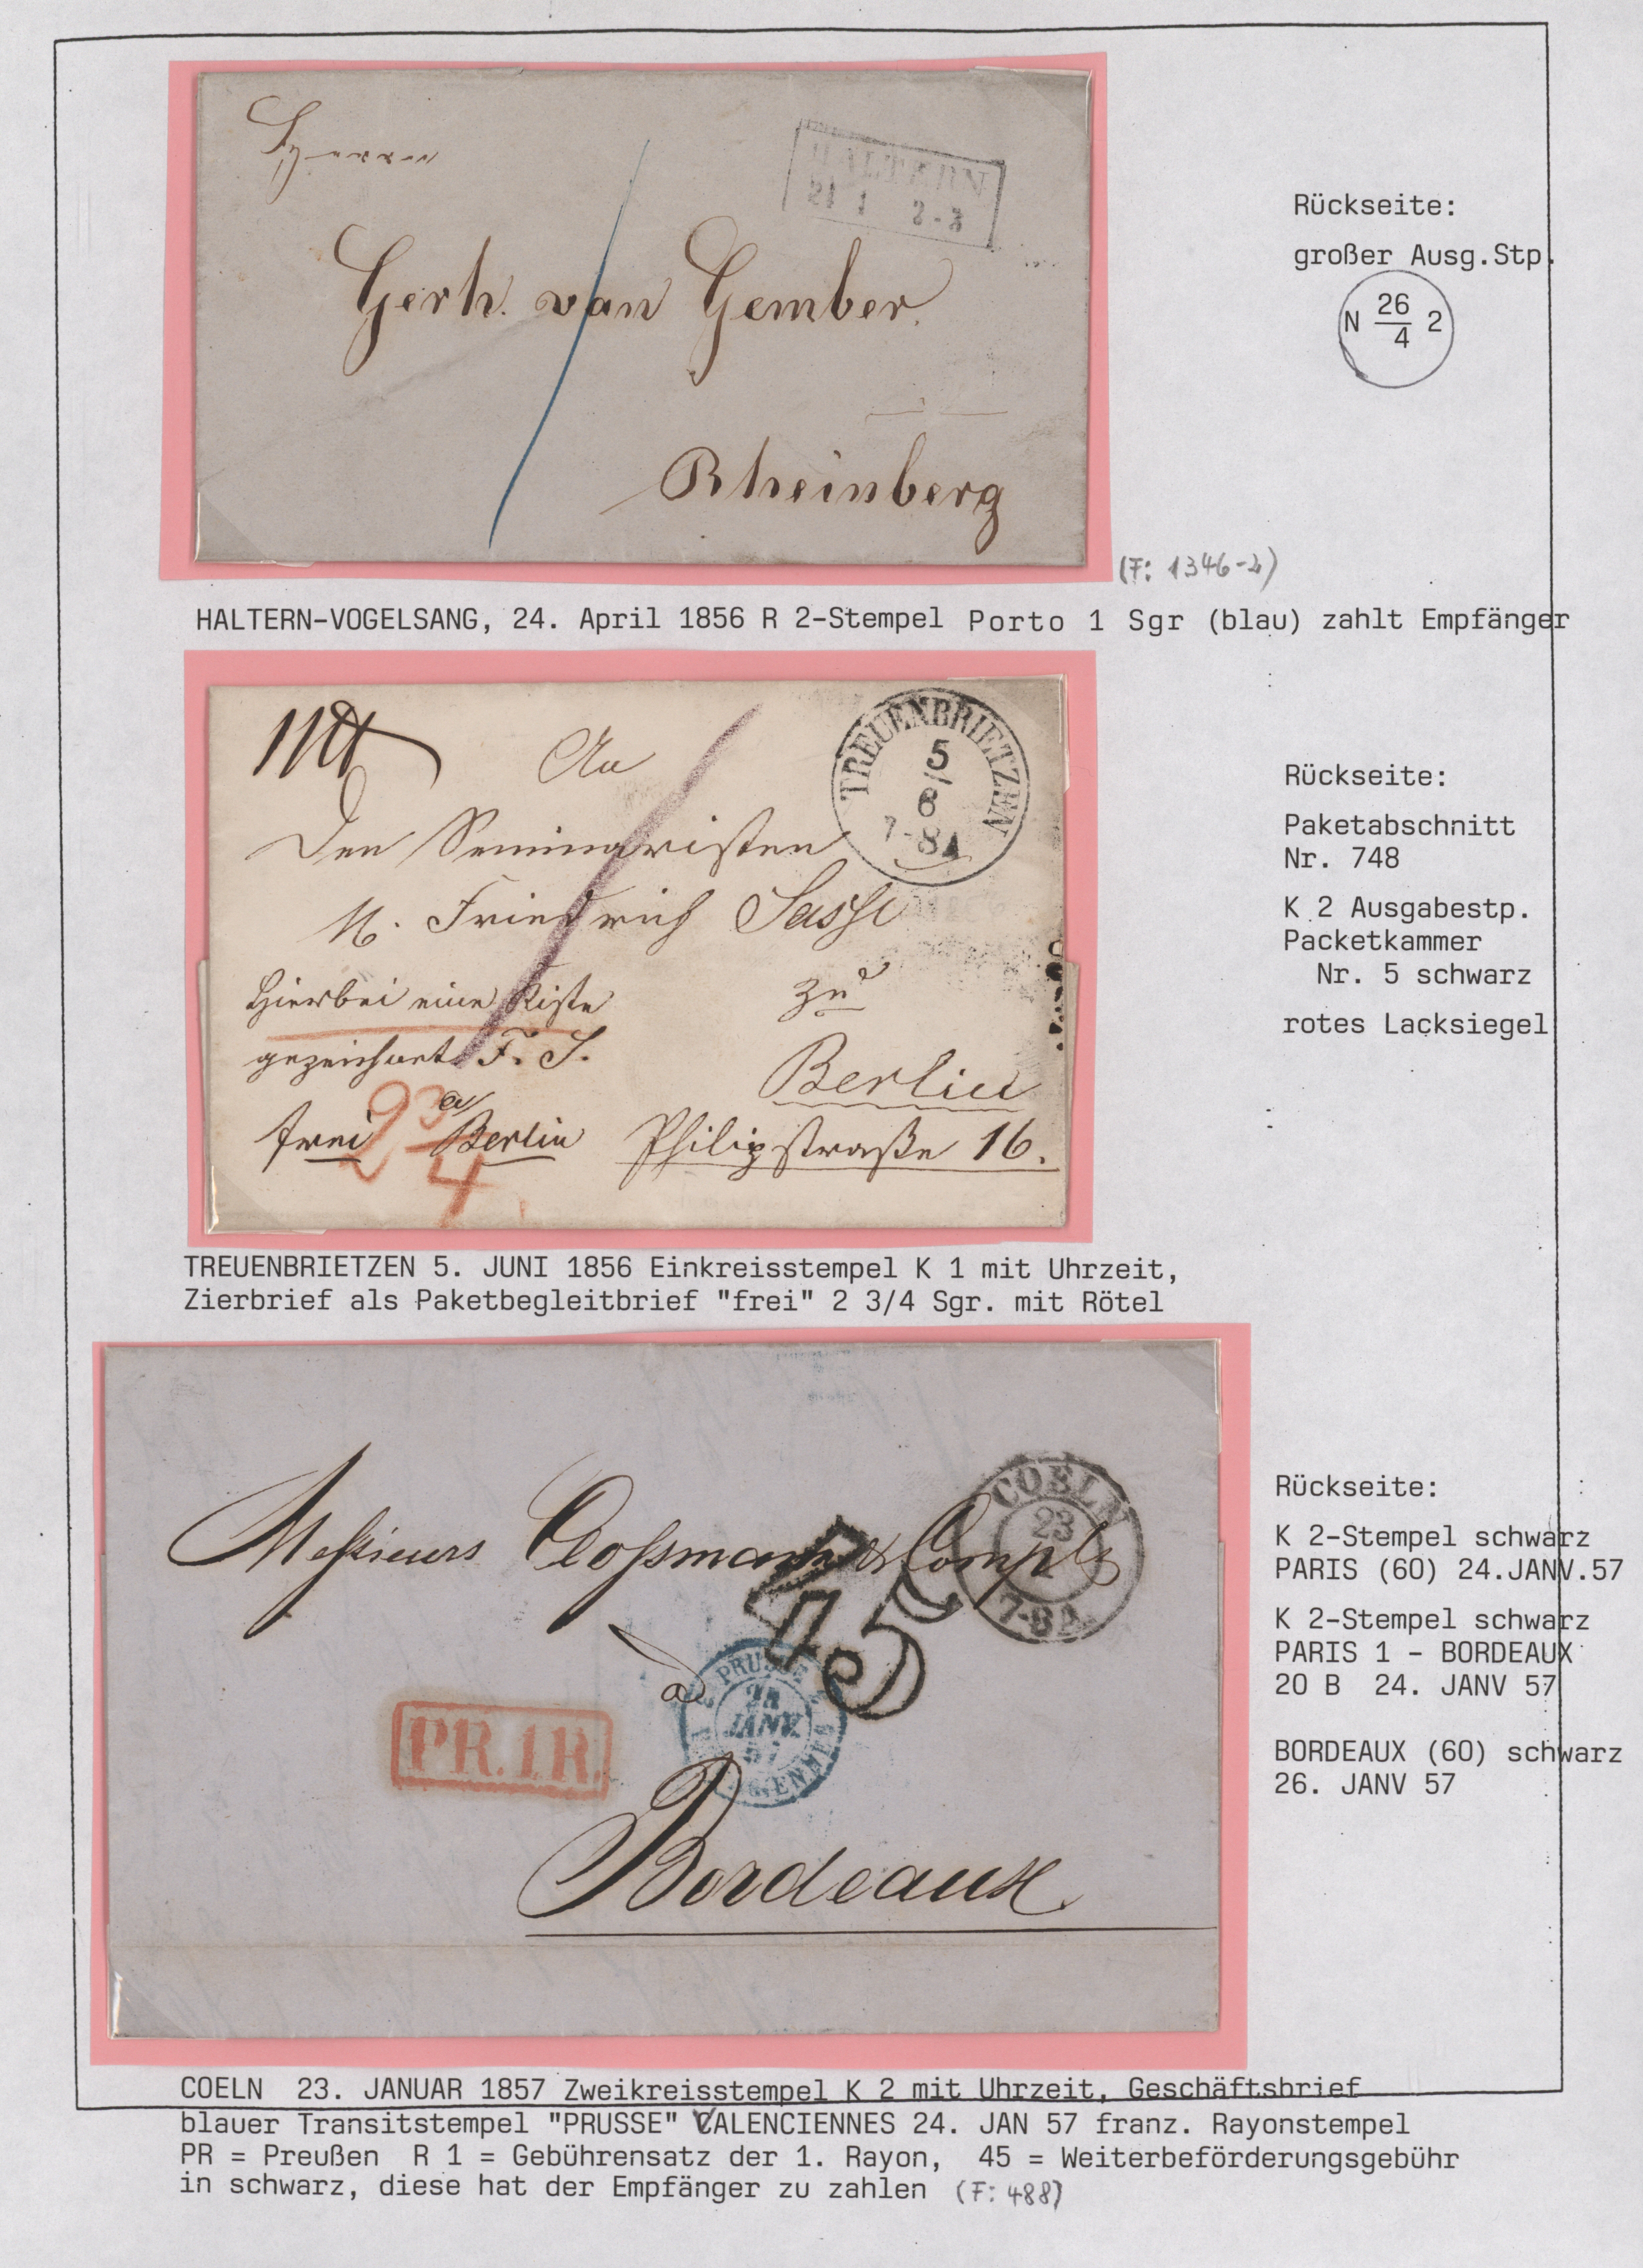 Herrn
HALTERN
24 4 2-3
Gerh. van Gember.
Rheinberg
Rückseite:
großer Ausg.Stp.
N 26/4 2
(F: 1346-2)
HALTERN-VOGELSANG, 24. April 1856 R 2-Stempel Porto 1 Sgr (blau) zahlt Empfänger
An
TREUENBRIETZEN
5/6
7-8A
Den Seminaristen
H. Friedrich Sasse
Hierbei eine Kiste
zu
gezeichnet F. S.
Berlin
2 3/4
frei a/ Berlin
Philipstraße 16.
Rückseite:
Paketabschnitt
Nr. 748
K 2 Ausgabestp.
Packetkammer
Nr. 5 schwarz
rotes Lacksiegel
TREUENBRIETZEN 5. JUNI 1856 Einkreisstempel K 1 mit Uhrzeit,
Zierbrief als Paketbegleitbrief "frei" 2 3/4 Sgr. mit Rötel
COELN
23
7-8A
Messieurs Clossmann & Comp
45
à
PRUSSE
24
JANV.
57
PR.1R.
Bordeaux
Rückseite:
K 2-Stempel schwarz
PARIS (60) 24.JANV.57
K 2-Stempel schwarz
PARIS 1 - BORDEAUX
20 B 24. JANV 57
BORDEAUX (60) schwarz
26. JANV 57
COELN 23. JANUAR 1857 Zweikreisstempel K 2 mit Uhrzeit, Geschäftsbrief
blauer Transitstempel "PRUSSE" VALENCIENNES 24. JAN 57 franz. Rayonstempel
PR = Preußen R 1 = Gebührensatz der 1. Rayon, 45 = Weiterbeförderungsgebühr
in schwarz, diese hat der Empfänger zu zahlen (F: 488)